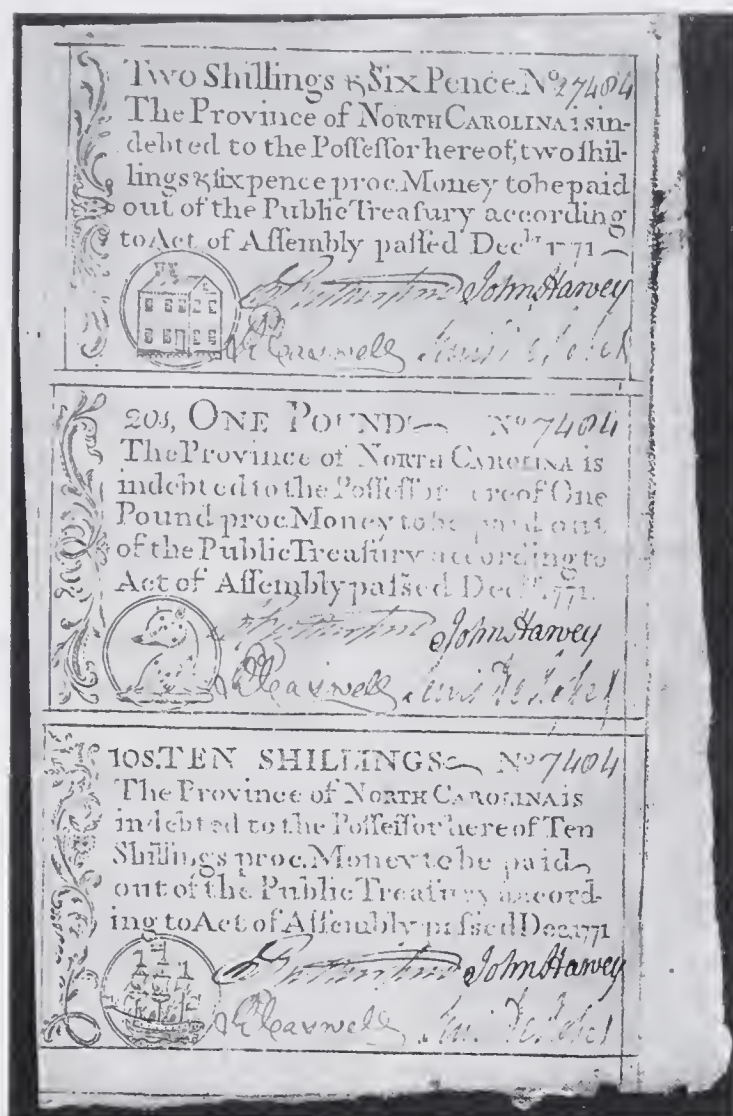 Two Shillings & Six Pence. No 27484
The Province of NORTH CAROLINA is in-
debted to the Poſſeſſor hereof, two ſhil-
lings & ſix pence proc. Money to be paid
out of the Public Treaſury according
to Act of Aſſembly paſſed Decbr 1771
John Harvey
R Caswell
20s, ONE POUND No 7484
The Province of NORTH CAROLINA is
indebted to the Poſſeſſor hereof One
Pound proc. Money to be paid out
of the Public Treaſury according to
Act of Aſſembly paſsed Decbr. 1771.
John Harvey
R Caswell Lewis De Roſset
10S. TEN SHILLINGS No 7484
The Province of NORTH CAROLINA is
indebted to the Poſſeiſſor here of Ten
Shillings proc. Money to be paid
out of the Public Treaſury accord-
ing to Act of Aſſembly paſſed Dec 1771
John Harvey
R Caswell